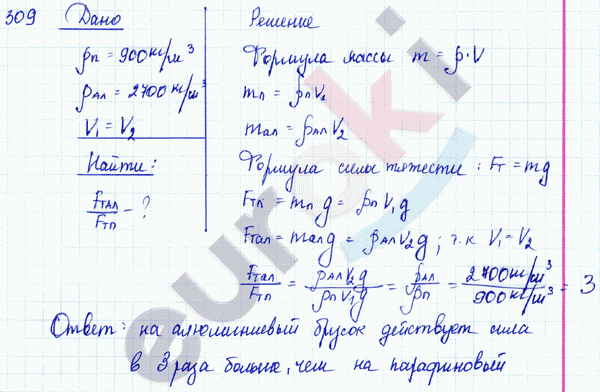 309 Дано
ρп = 900 кг/м³
ρал = 2700 кг/м³
V₁ = V₂
Найти:
Fтал/Fтп - ?
Решение
Формула массы m = ρ·V
mп = ρпV₁
mал = ρалV₂
Формула силы тяжести: Fт = mg
Fтп = mп g = ρп V₁ g
Fтал = mал g = ρал V₂ g ; т.к V₁ = V₂
Fтал/Fтп = ρалV₂g/ρпV₁g = ρал/ρп = 2700 кг/м³/900 кг/м³ = 3
Ответ: на алюминиевый брусок действует сила
в 3 раза больше, чем на парафиновый
euroki